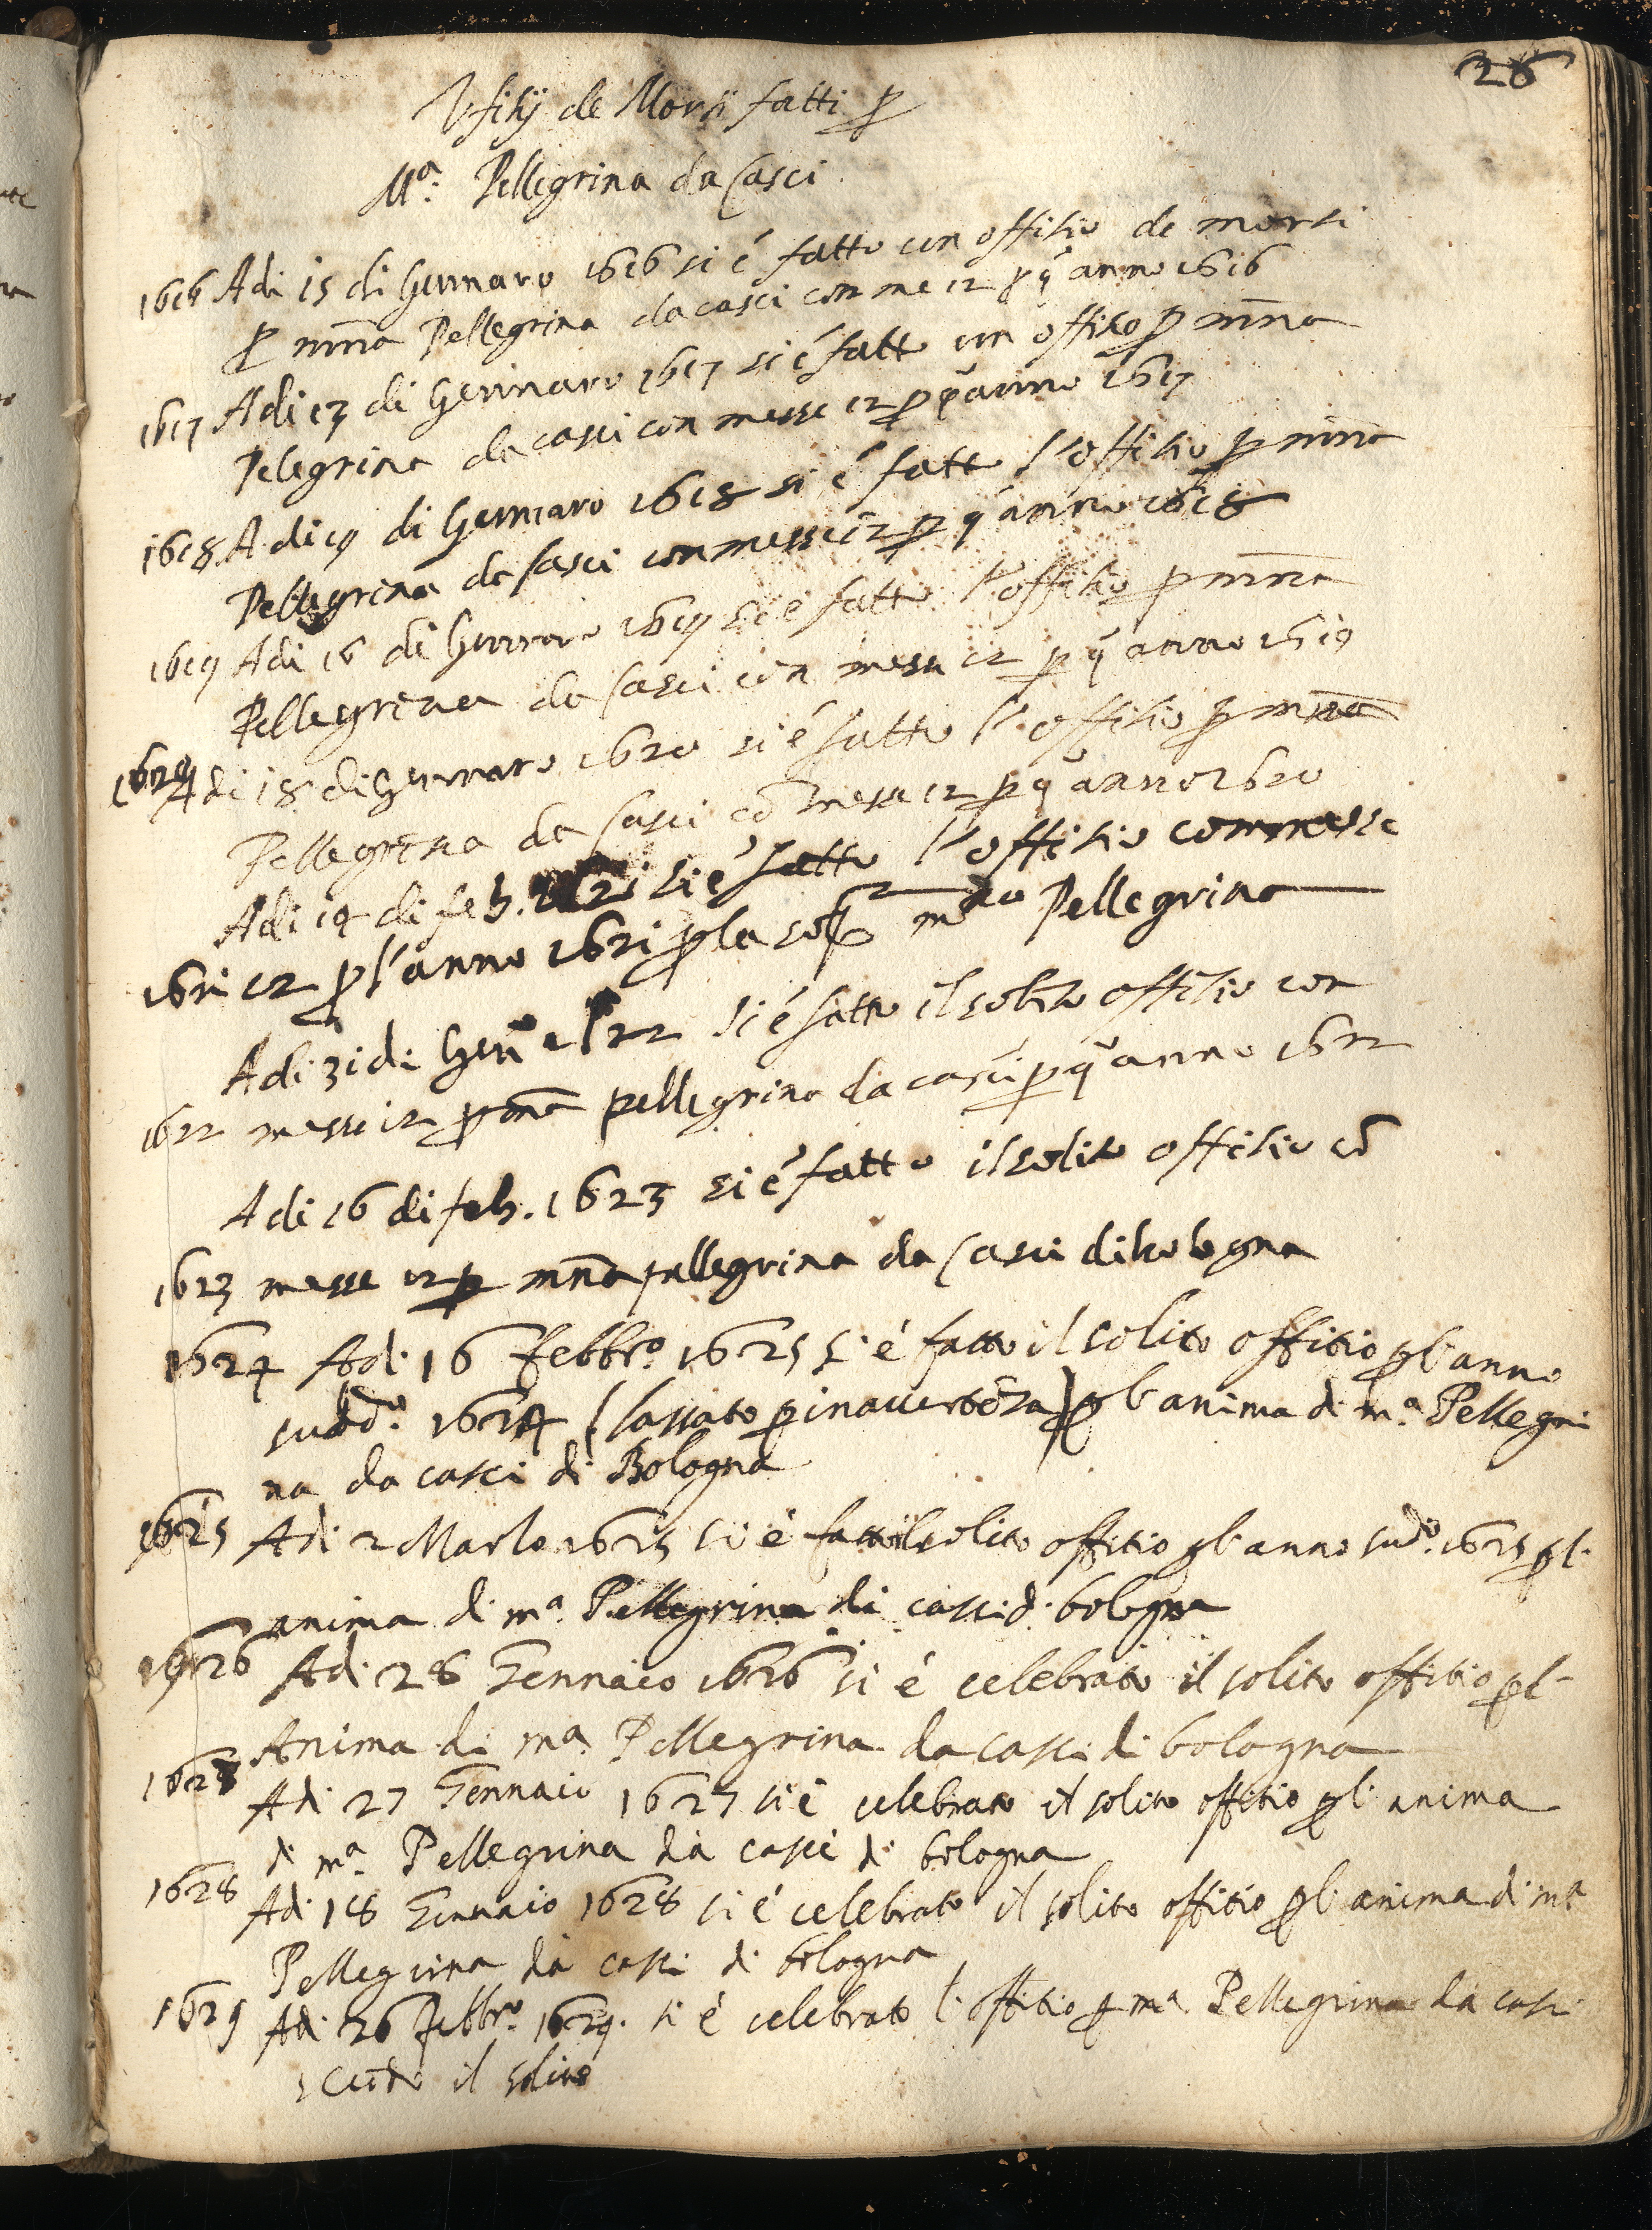 26
Vfitij de Morti fatti p
Mª. Pellegrina da Casci
1616 Adi 15 di Gennaro 1616 si é fatto un offitio de morti
p mnã Pellegrina da casci con me 12 p q̃ anno 1616
1617 Adi 13 di Gennaro 1617 si é fatto un offitio p mnã
Pelegrina da casci con messe 12 p q̃ anno 1617
1618 Adi 19 di Gennaro 1618 si é fatto l'offitio p mnã
Pellegrina da Casci con messe 12 p q̃ anno 1618
1619 Adi 16 di Gennaro 1619 si é fatto l'offitio p mnã
Pellegrina da Casci con messe 12 p q̃ anno 1619
1620 Adi 18 di Gennaro 1620 si é fatto l'offitio p mnã
Pellegrina da Casci cõ messe 12 p q̃ anno 1620
Adi 19 di feb. 1621 si é fatto l'offitio con messe
1621 12 p l'anno 1621 p la Pellegrina
Adi 31 di Genº 1622 si é fatto il solito offitio con
1622 messe 12 p mnã pellegrina da casci p q̃ anno 1622
Adi 16 di feb. 1623 si é fatto il solito offitio cõ
1623 messe 12 p mnã pellegrina da Casci di bologna
1624 Adi 16 febbrº 1625 si é fatto il solito offitio p l'anno
sudº. 1624 (lassato p inavertẽza) p l'anima di mª. Pellegri
na da casci di Bologna
1625 Adi 2 Marzo 1625 si é fatto il solito offitio p l'anno sudº. 1625 p l'
anima di mª. Pellegrina di casci di bologna
1626 Adi 28 Gennaio 1626 si é celebrato il solito offitio p l'
Anima di mª Pellegrina da casci di bologna
1627 Adi 27 Gennaio 1627 si é celebrato il solito offitio p l'anima
di mª. Pellegrina da casci di bologna
1628 Adi 18 Gennaio 1628 si é celebrato il solito offitio p l'anima di mª
Pellegrina da casci di bologna
1629 Adi 26 febbrº. 1629. si é celebrato l'offitio p mª Pellegrina da casci
il solito